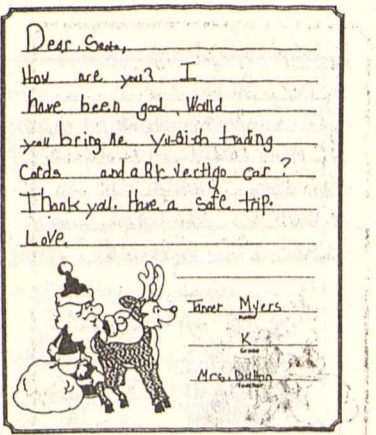 Dear, Santa,
How are you? I
have been good. Would
you bring me Yu-Gi-oh trading
Cards and a RC Vertigo car?
Thank you. Have a safe trip.
Love,
Tanner Myers
Name
K
Grade
Mrs. Dutton
Teacher